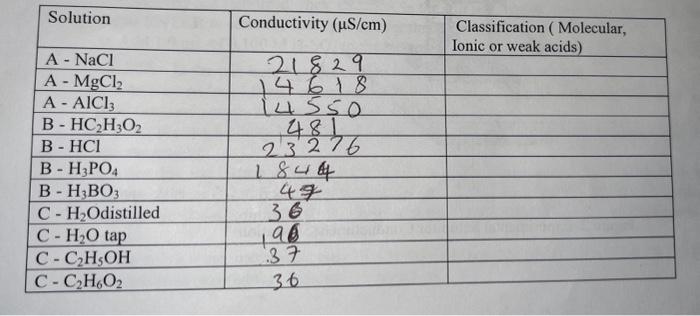 Solution Conductivity (µS/cm) Classification ( Molecular,
Ionic or weak acids)
A - NaCl 21829
A - MgCl₂ 14618
A - AlCl₃ 14550
B - HC₂H₃O₂ 481
B - HCl 23276
B - H₃PO₄ 1844
B - H₃BO₃ 47
C - H₂Odistilled 36
C - H₂O tap 196
C - C₂H₅OH 37
C - C₂H₆O₂ 36